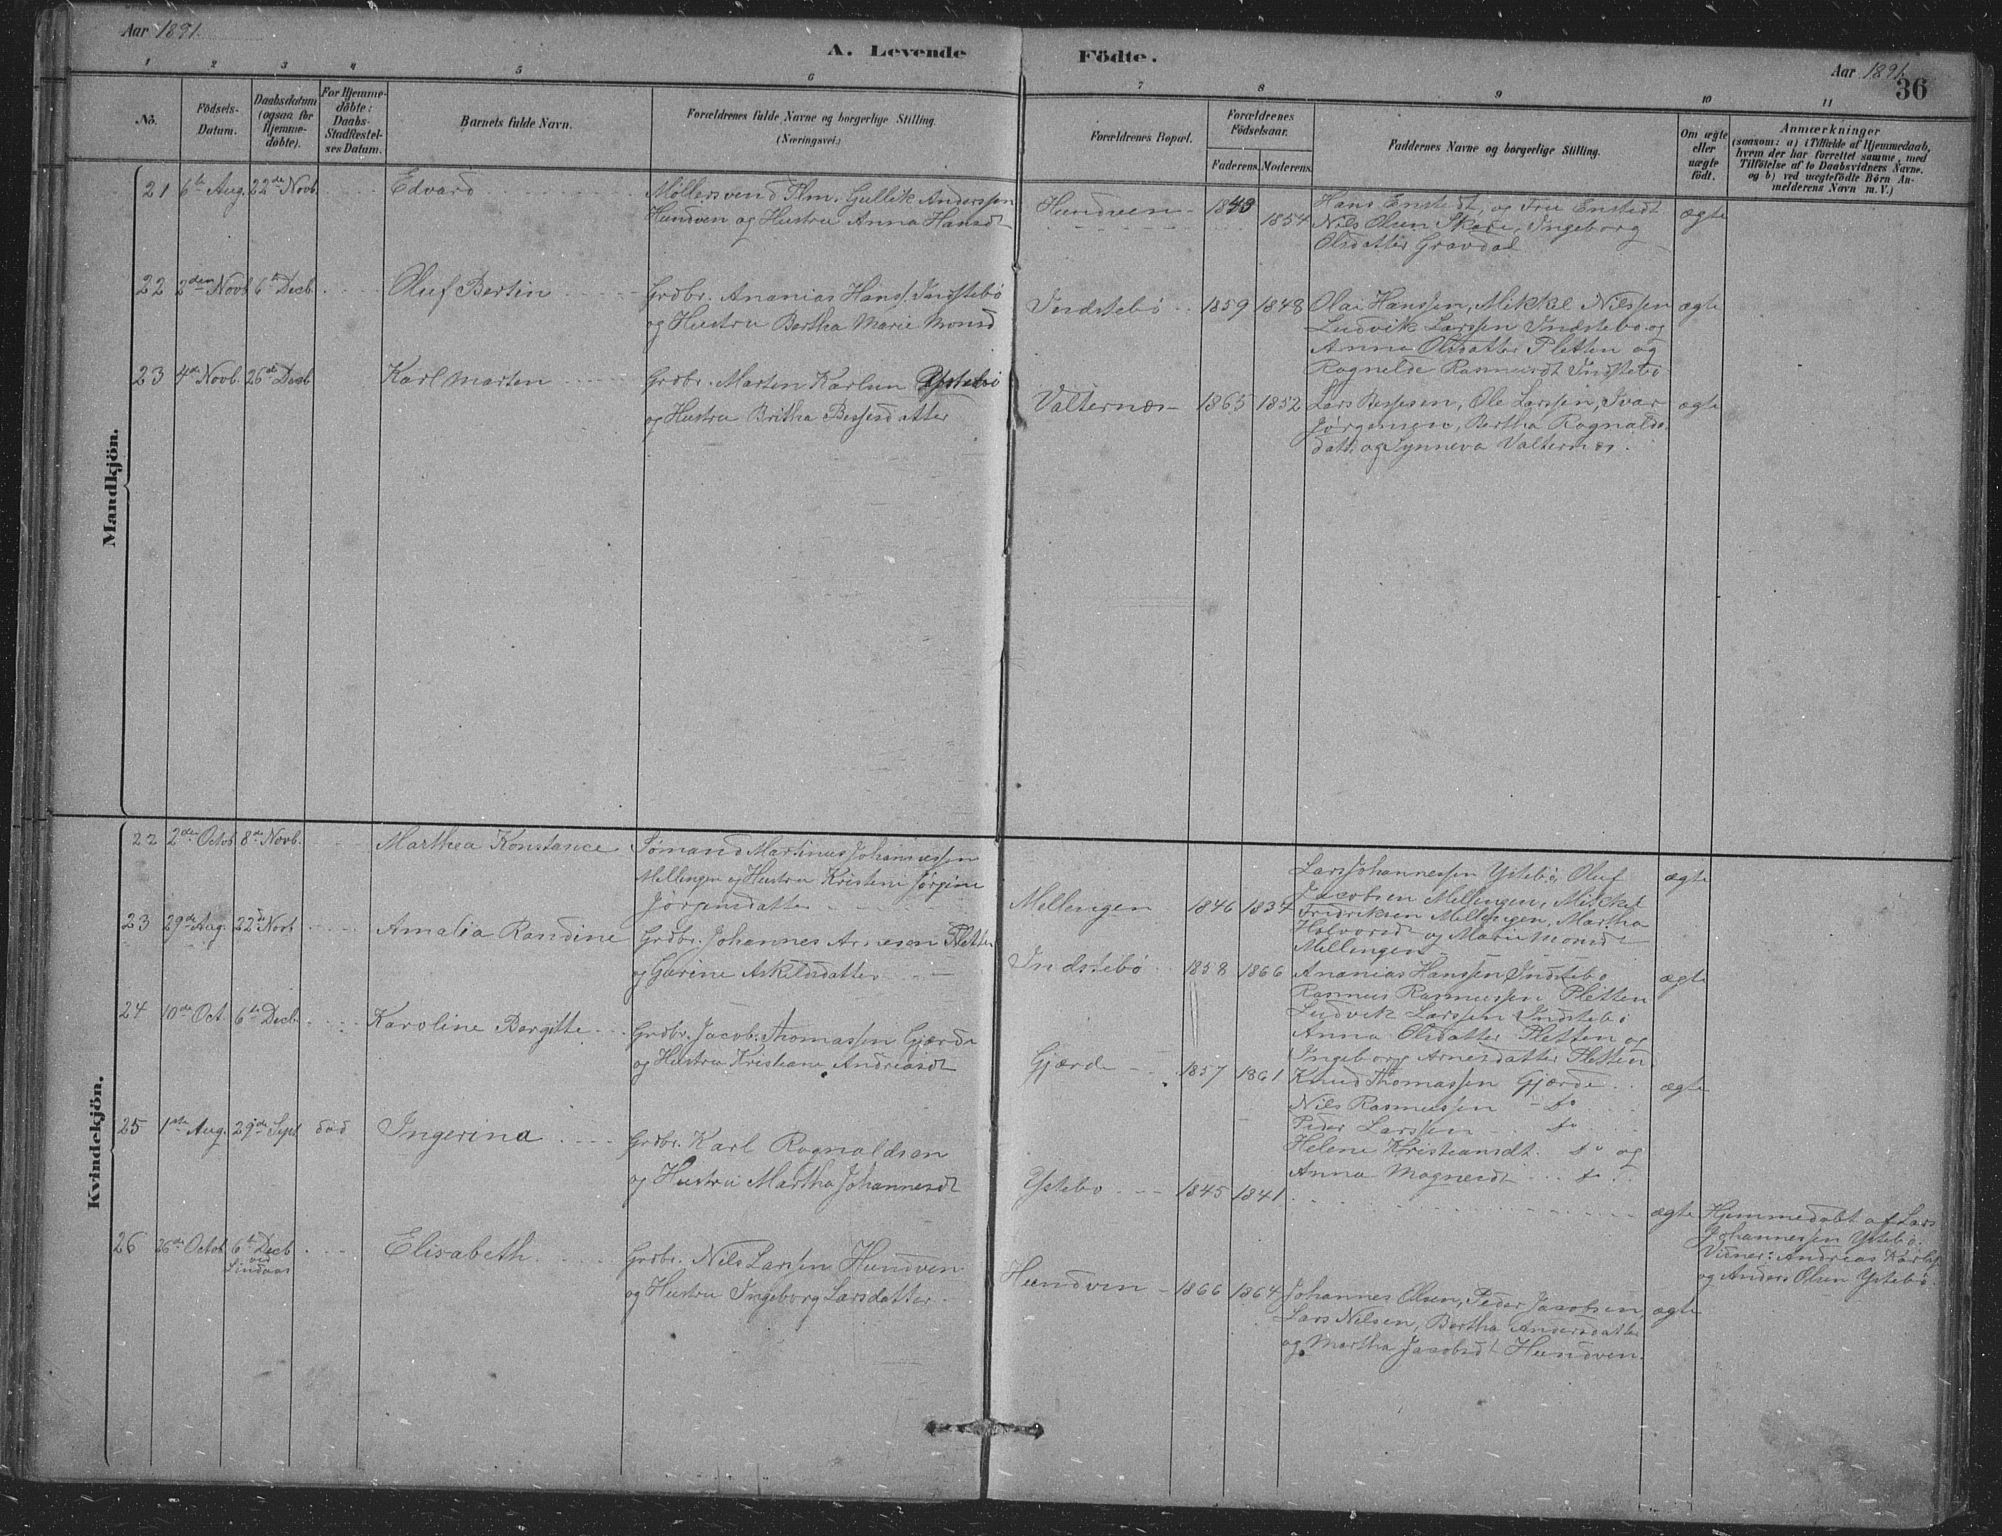 Aar 1891.
A. Levende Födte.
Aar 1891.
36
1 2 3 4 5 6 7 8 9 10 11
No.
Födsels-Datum.
Daabsdatum (ogsaa for Hjemmedöbte).
For Hjemmedöbte: Daabs-Stadfæstelses Datum.
Barnets fulde Navn.
Forældrenes fulde Navne og borgerlige Stilling.
(Næringsvei.)
Forældrenes Bopæl.
Forældrenes Födselsaar.
Faderens. Moderens.
Faddernes Navne og borgerlige Stilling.
Om ægte eller uægte födt.
Anmærkninger
(saasom: a) i Tilfælde af Hjemmedaab,
hvem der har forrettet samme, med
Tilföielse af to Daabsvidners Navne,
og b) ved uægtefödte Börn An-
melderens Navn m. V.)
Mandkjön.
21 6te Aug. 22de Novb. Edvard
Möllersvend Tlm. Gullik Anderssen
Hundven og Hustru Anna Hansdt
Hundven 1843 1854
Hans Enstedt, og Fru Enstedt
Nils Olsen Skare, Ingeborg
Olsdatter Gravdal
ægte
22 2den Novb 6te Decb. Oluf Bertin
Grdbr. Ananias Hanss. Indstebö
og Hustru Bertha Marie Monsd
Indstebö 1859 1848
Olai Hanssen, Mikkel Nilssen
Ludvik Larssen Indstebö og
Anna Olsdatter Pletten og
Ragnelde Rasmusdt Indstebö
ægte
23 4de Novb. 26de Decb Karl Marten
Grdbr. Marten Karlsen Ystebö
og Hustru Britha Bessesdatter
Valternæs 1865 1852
Lars Bessesen, Ole Larssen, Ivar
Jörgensen, Bertha Ragnalds-
datt. og Synneva Valternæs.
ægte
Kvindekjön.
22 2den Octob 8de Novb. Marthea Konstance
Sömand Martinus Johannessen
Mellengen og Hustru Kristeni Jörgine
Jörgensdatter
Mellengen 1846 1834
Lars Johannessen Ystebö, Oluf
Jacobsen Mellengen, Mikkel
Fredriksen Mellengen, Martha
Halvorsdt og Marie Monsdt
Mellengen
ægte
23 29de Aug. 22de Novb Amalia Randine
Grdbr. Johannes Arnesen Pletten
og Gurine Askeldsdatter
Indstebö 1858 1866
Ananias Hanssen Indstebö
Rasmus Rasmussen Pletten
Ludvik Larssen Indstebö
Anna Olsdatter Pletten og
Ingeborg Arnesdatter Pletten
ægte
24 10de Oct. 6te Decb. Karoline Bergitte
Grdbr. Jacob Thomassen Gjærde
og Hustru Kristiane Andreasdt
Gjærde 1857 1861
Knud Thomassen Gjærde
Nils Rasmussen do
Peder Larssen do
Helene Kristiansdt. do og
Anna Magnesdt do
ægte
25 1ste Aug. 29de Sept död Ingerina
Grdbr. Karl Ragnaldsen
og Hustru Martha Johannesdt
Ystebö 1845 1841
ægte
Hjemmedöbt af Lars
Johannessen Ystebö.
Vidner: Andreas Karls.
og Anders Olsen Ystebö.
26 26de Octob 6te Decb ved Lindaas Elisabeth
Grdbr. Nils Larssen Hundven
og Hustru Ingeborg Larsdatter
Hundven 1866 1864
Johannes Olsen, Peder Jacobsen,
Lars Nilsen, Bertha Andersdatter
og Martha Jacobsdt Hundven.
ægte